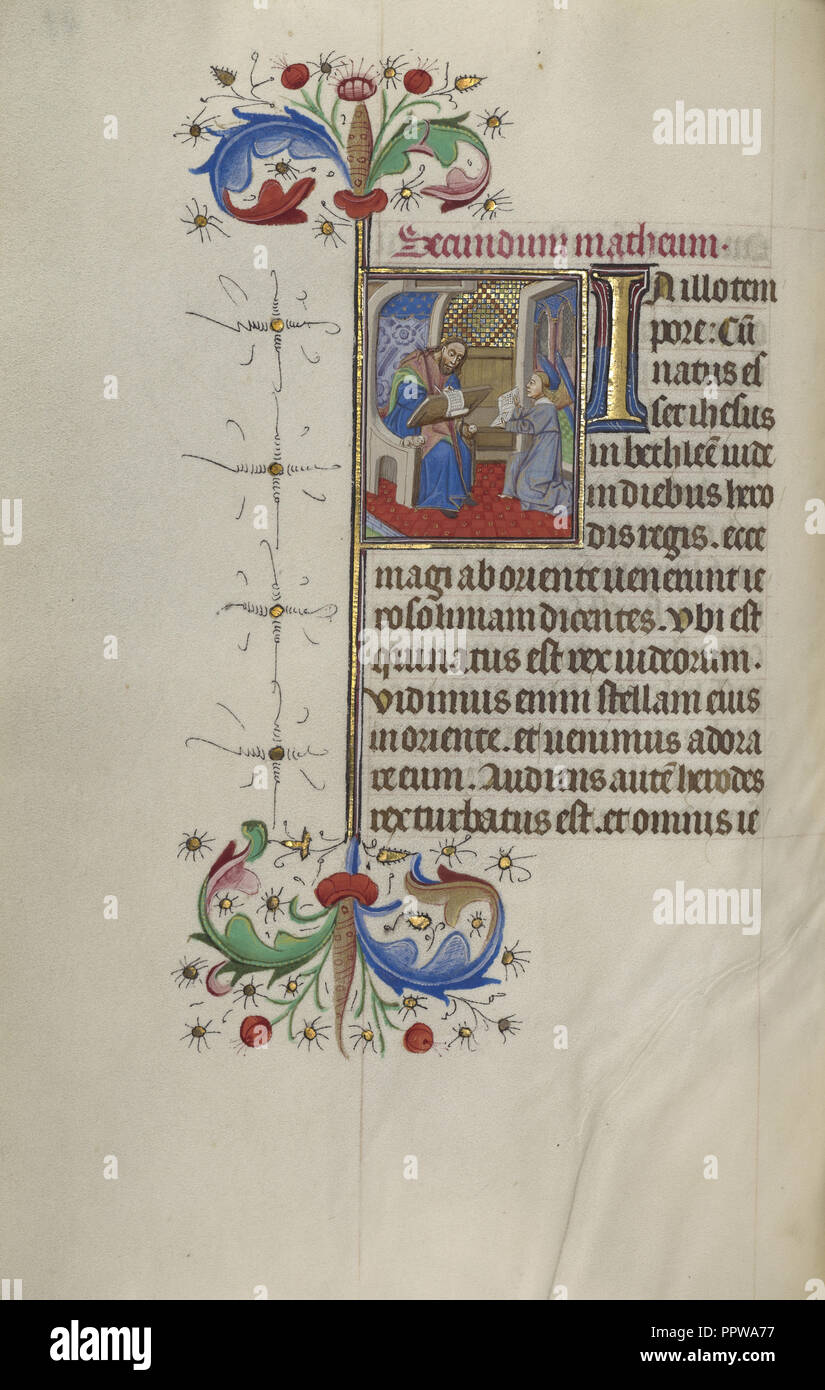 Secundum matheum.
IN illo tem
pore: Cū
natus es
set ihesus
in bethleē iude
in diebus hero
dis regis. ecce
magi ab oriente uenerunt ie
rosolimam dicentes. Vbi est
qui natus est rex iudeorum.
Vidimus enim stellam eius
in oriente. et uenimus adora
re eum. Audiens autē herodes
rex turbatus est. et omnis ie
alamy
alamy
alamy
alamy
a
a
a
a
a
a
a
a
alamy
Image ID: PPWA77
www.alamy.com